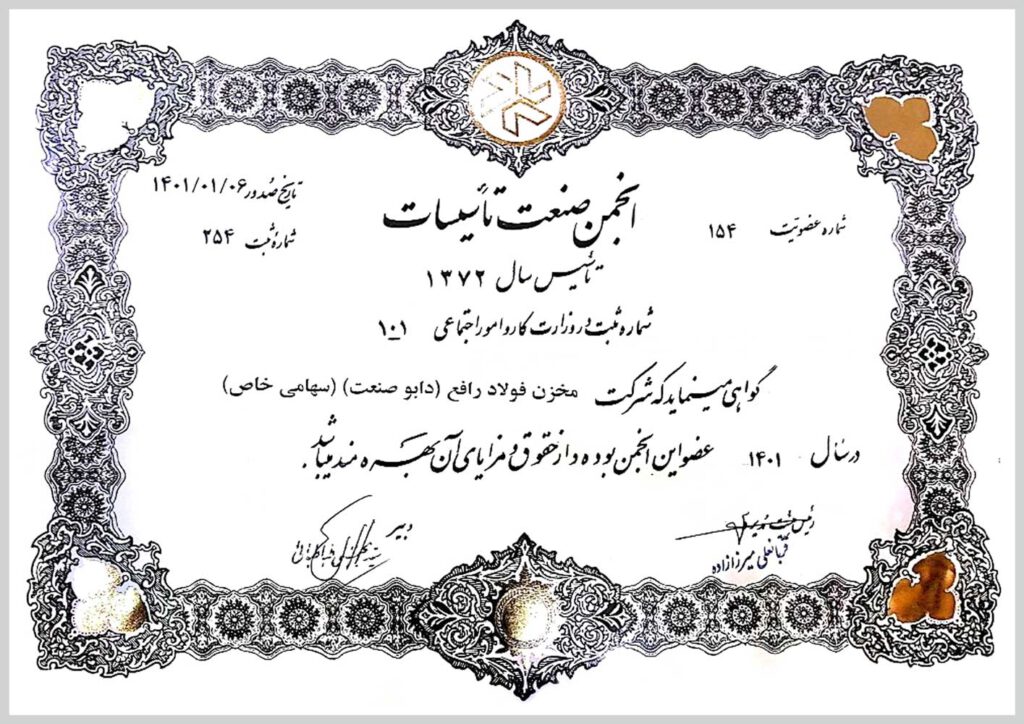 انجمن صنعت تأسیسات
تاریخ صدور ۱۴۰۱/۰۱/۰۶
شماره عضویت ۱۵۴
شماره ثبت ۲۵۴
تأسیس سال ۱۳۷۲
شماره ثبت در وزارت کار و امور اجتماعی ۱۰۱
گواهی مینماید که شرکت مخزن فولاد رافع (دابو صنعت) (سهامی خاص)
در سال ۱۴۰۱ عضو این انجمن بوده و از حقوق و مزایای آن بهره مند میباشد.
رئیس هیئت مدیره
قربانعلی میرزازاده
دبیر